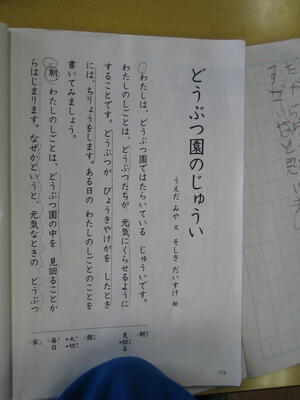 どうぶつ園のじゅうい
うえだ みや 文 そしき だいすけ 絵
わたしは、どうぶつ園ではたらいている じゅういです。
わたしのしごとは、どうぶつたちが 元気にくらせるように
することです。どうぶつが びょうきやけがを したとき
には、ちりょうをします。ある日の わたしのしごとのことを
書いてみましょう。
朝、わたしのしごとは、どうぶつ園の中を 見回ることか
らはじまります。なぜかというと、元気なときの どうぶつ
朝
見回る
顔
大切
毎日
家
116